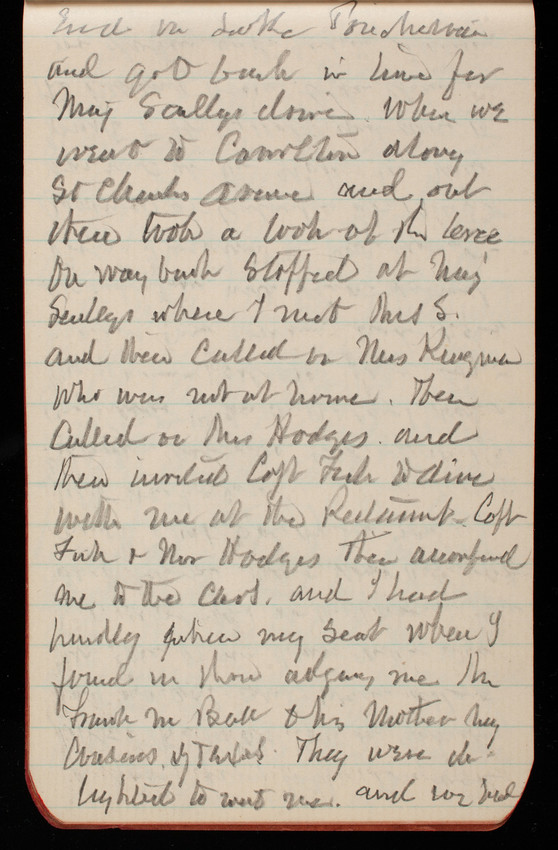 End on Lake
and got back in time for
Maj Scullys drive. When we
went to Carrolton along
St Charles Avenue and out
there took a look at the levee
On way back stopped at Maj
Scullys where I met Mrs S.
and then called on Mrs Kingman
who was not at home. Then
Called on Mrs Hodges. and
then invited Capt Fisk to dine
with me at the Resturant. Capt
Fisk & Mr Hodges then
me to the cars. and I had
hardly taken my seat when I
found in those me Mr
Frank M Ball & his Mother my
Cousins of Texas. They were de-
lighted to meet me. and we had